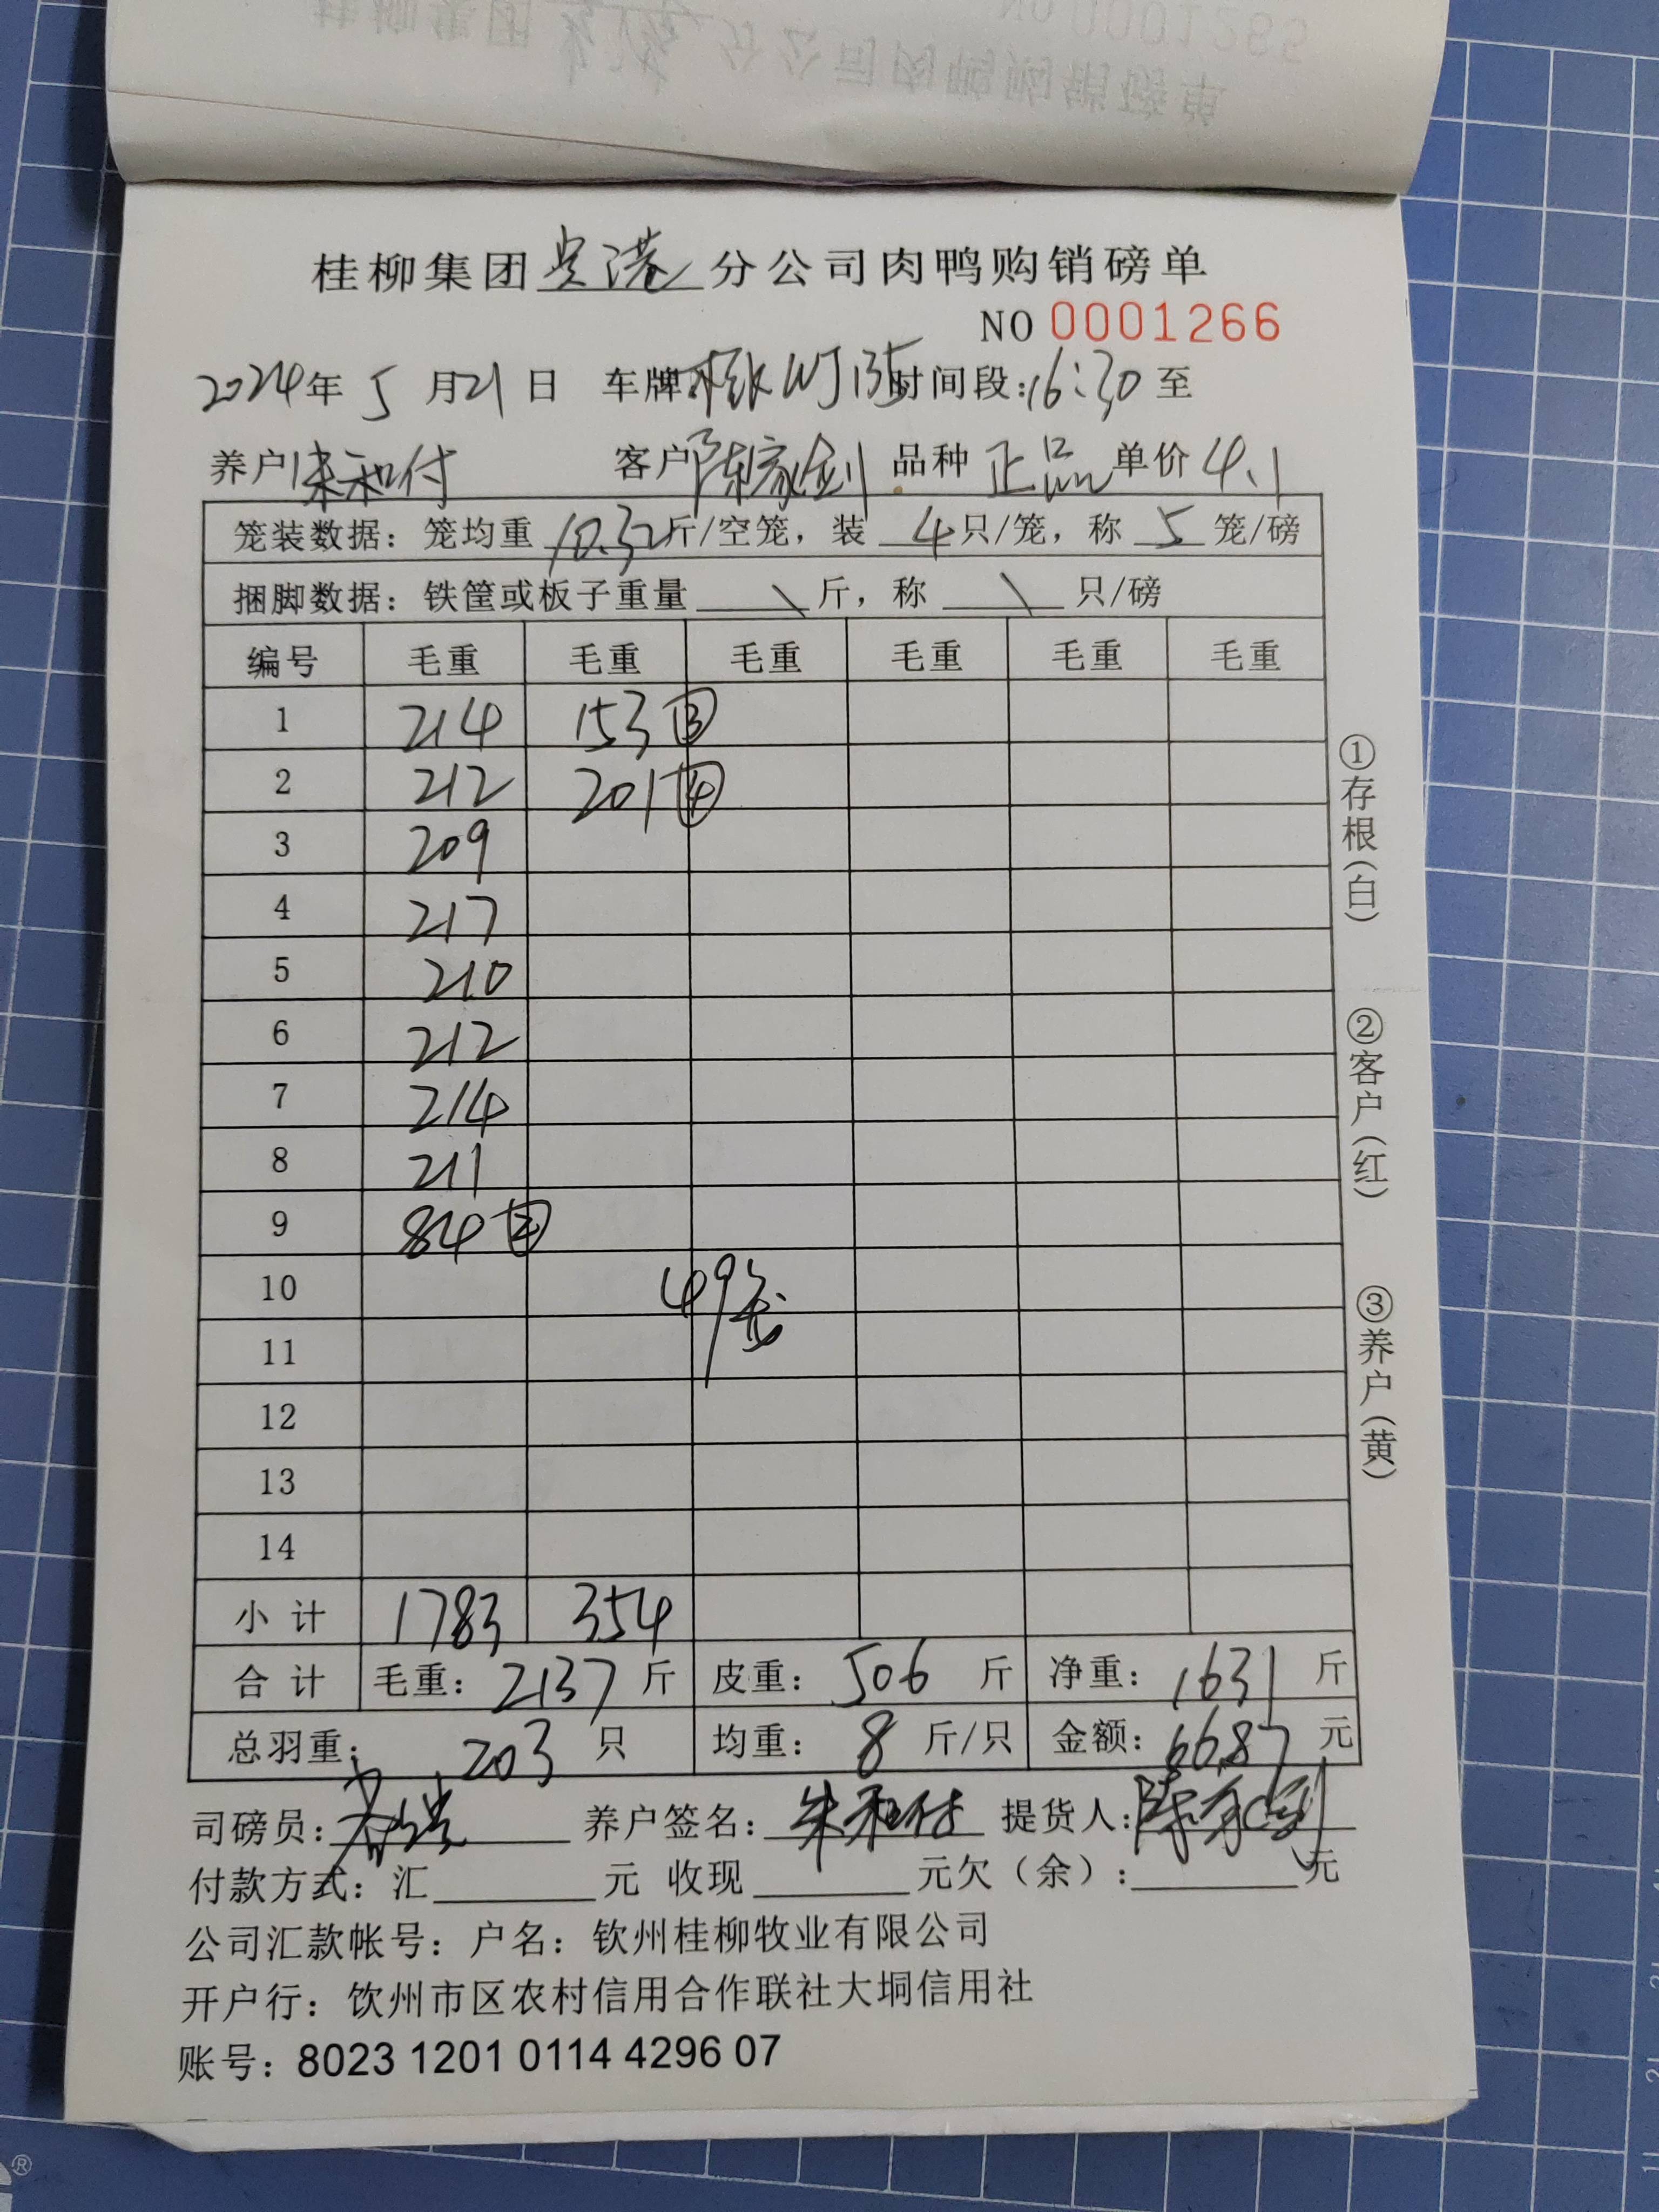 NO 0001285
桂柳集团 分公司肉鸭购销磅单
桂柳集团贵港分公司肉鸭购销磅单
NO 0001266
2024年 5 月21 日 车牌: 时间段:16:30 至
养户 朱和付 客户 陈家剑 品种 正品 单价 4.1
笼装数据：笼均重 10.32斤/空笼，装 4只/笼，称 5 笼/磅
捆脚数据：铁筐或板子重量 \ 斤，称 \ 只/磅
编号 毛重 毛重 毛重 毛重 毛重 毛重
1 214 153 ③
2 212 201 ④
3 209
4 217
5 210
6 212
7 214
8 211
9 84 ②
10 49笼
11
12
13
14
小 计 1783 354
合 计 毛重：2137 斤 皮重：506 斤 净重：1631 斤
总羽重：203 只 均重：8 斤/只 金额：6687 元
司磅员： 养户签名：朱和付 提货人：陈家剑
付款方式：汇 元 收现 元欠（余）： 元
公司汇款帐号：户名：钦州桂柳牧业有限公司
开户行：饮州市区农村信用合作联社大垌信用社
账号：8023 1201 0114 4296 07
①存根(白)
②客户(红)
③养户(黄)